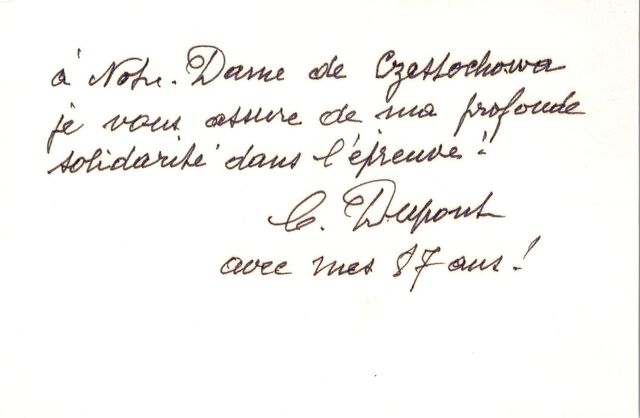 à Notre-Dame de Czestochowa
je vous assure de ma profonde
solidarité dans l'épreuve!
C. Dupont
avec mes 87 ans!